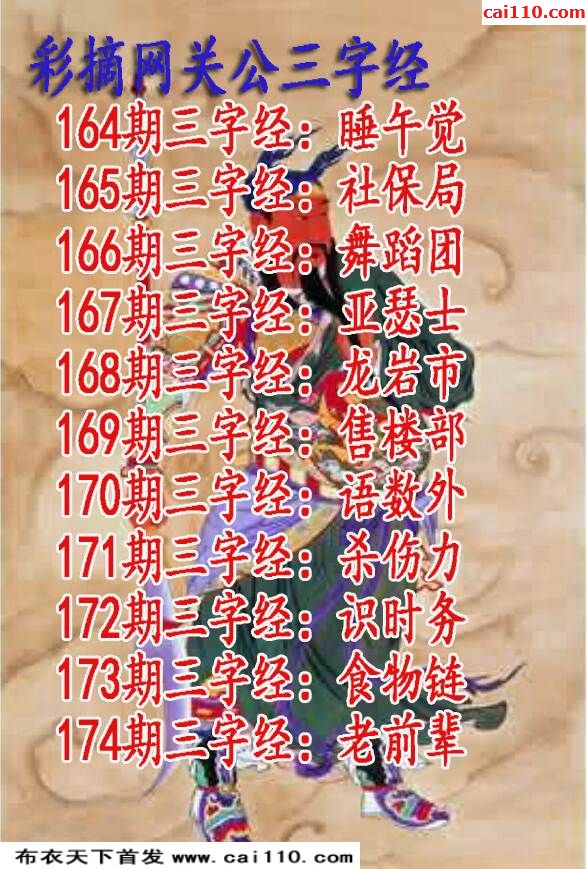 cai110.com
彩摘网关公三字经
164期三字经：睡午觉
165期三字经：社保局
166期三字经：舞蹈团
167期三字经：亚瑟士
168期三字经：龙岩市
169期三字经：售楼部
170期三字经：语数外
171期三字经：杀伤力
172期三字经：识时务
173期三字经：食物链
174期三字经：老前辈
布衣天下首发 www.cai110.com